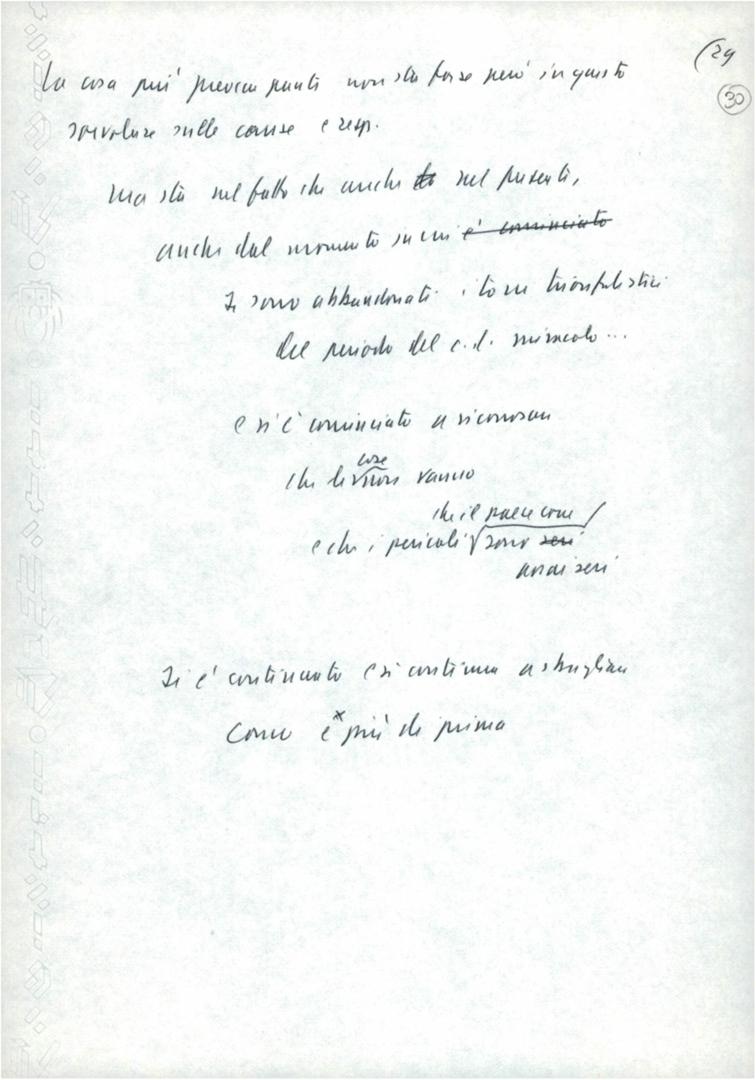 (29
30
La cosa più preoccupante non sta forse però in questo
sorvolare sulle cause e resp.
Ma sta nel fatto che anche nel presente,
anche dal momento in cui è cominciato
si sono abbandonati i toni trionfalistici
del periodo del c.d. miracolo...
e si è cominciato a riconoscere
che le cose non vanno
che il paese corre
e che i pericoli sono seri
assai seri
Si è continuato e si continua a sbagliare
come e più di prima